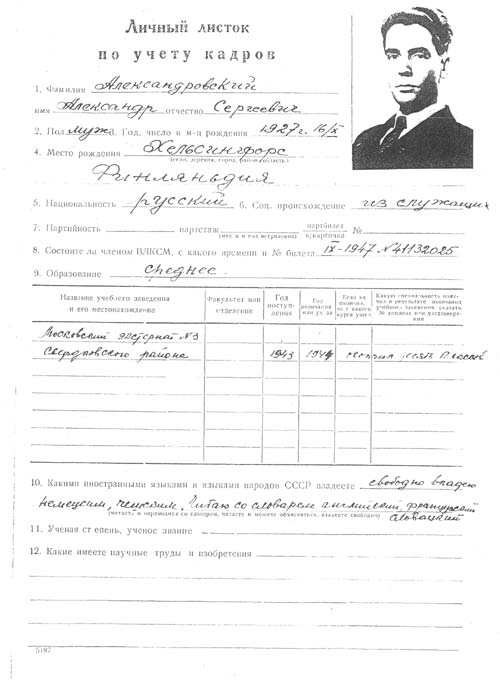 Личный листок
по учету кадров
1. Фамилия Александровский
имя Александр отчество Сергеевич
2. Пол муж 3. Год, число и м-ц рождения 1927 г. 16/X
4. Место рождения Хельсингфорс
(село, деревня, город, район, область)
Финляндия
5. Национальность русский 6. Соц. происхождение из служащих
7. Партийность партстаж партбилет
к/карточка №
8. Состоите ли членом ВЛКСМ, с какого времени и № билета IX-1947 N 41132025
9. Образование среднее.
Название учебного заведения и его местонахождение
Факультет или отделение
Год поступления
Год окончания или ухода
Если не окончил, то с какого курса ушел
Какую специальность получил в результате окончания учебного заведения, указать № диплома или удостоверения
Московский экстернат N 3
Свердловского района 1943 1944 десять классов
10. Какими иностранными языками и языками народов СССР владеете свободно владею
немецким, чешским. Читаю со словарем английский, французский
словацкий
(читаете и переводите со словарем, читаете и можете объясняться, владеете свободно)
11. Ученая степень, ученое звание
12. Какие имеете научные труды и изобретения